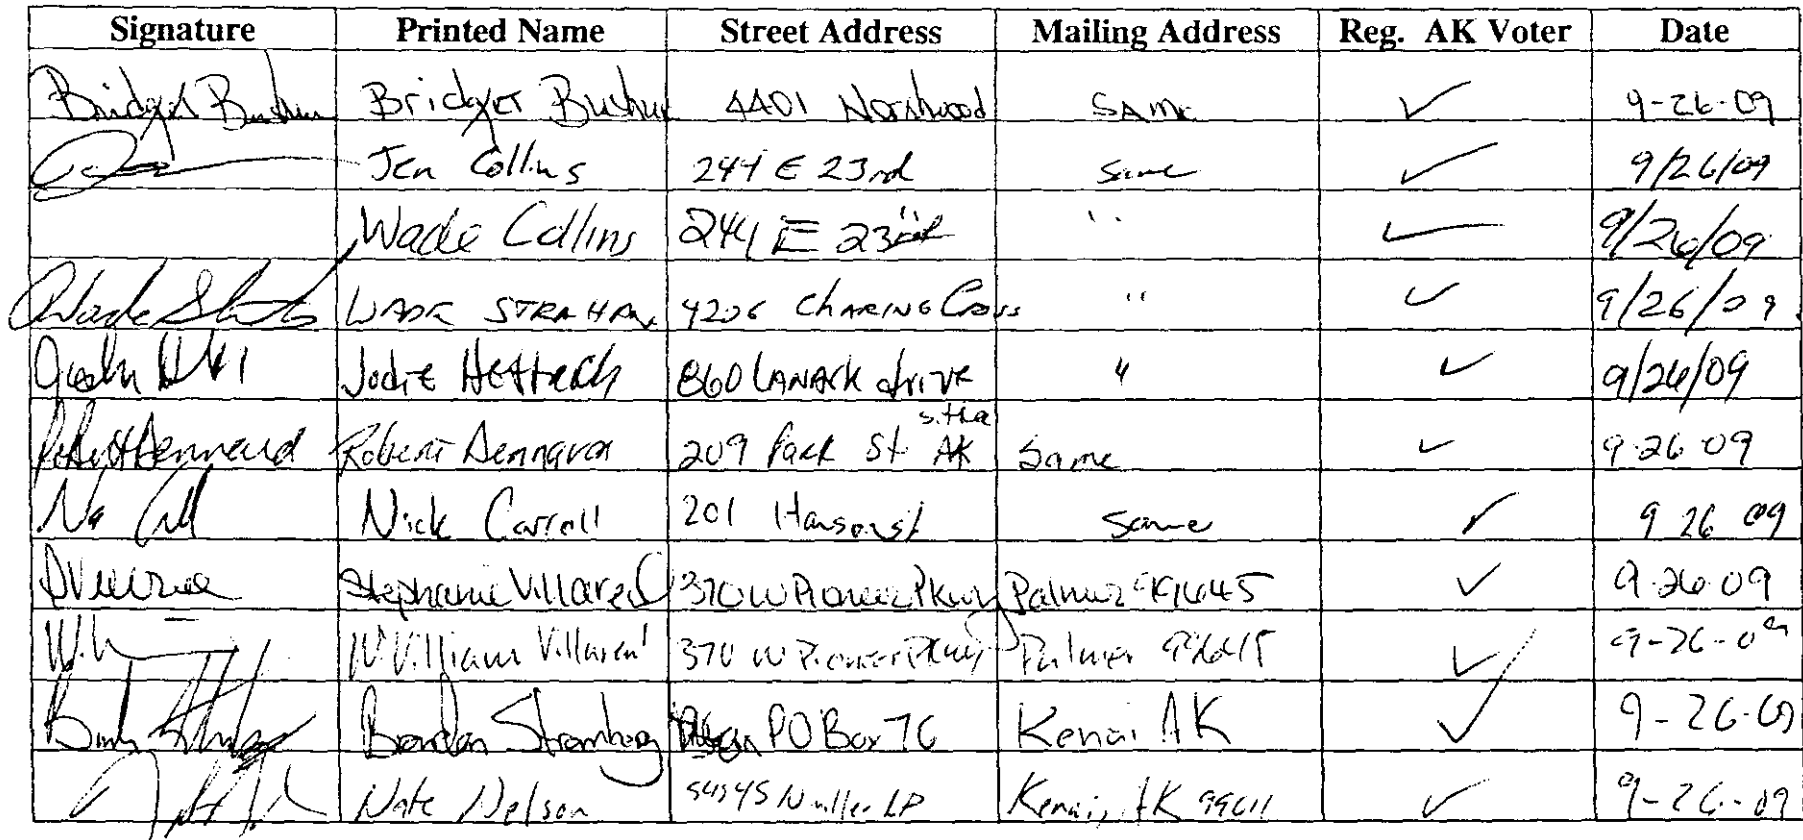 Signature Printed Name Street Address Mailing Address Reg. AK Voter Date
Bridget Bridget 4401 Northwood SAME ✓ 9-26-09
Jen Collins 244 E 23rd Same ✓ 9/26/09
Wade Collins 244 E 23rd " ✓ 9/26/09
Wade WADE STRAHAN 4206 CHARING Cross " ✓ 9/26/09
Jodie 860 LANARK drive " ✓ 9/26/09
Sitka
Robert Dennard Robert Dennard 209 Park St AK Same ✓ 9-26-09
Nick Carroll 201 Hanson st Same ✓ 9 26 09
Stephanie Villareal 370 W Pioneer Pkwy Palmer 99645 ✓ 9-26-09
W. William Villareal 370 W Pioneer Pkwy Palmer 99645 ✓ 9-26-09
Brandon Stromberg PO Box 76 Kenai AK ✓ 9-26-09
Nate Nelson Kenai, AK 99611 ✓ 9-26-09